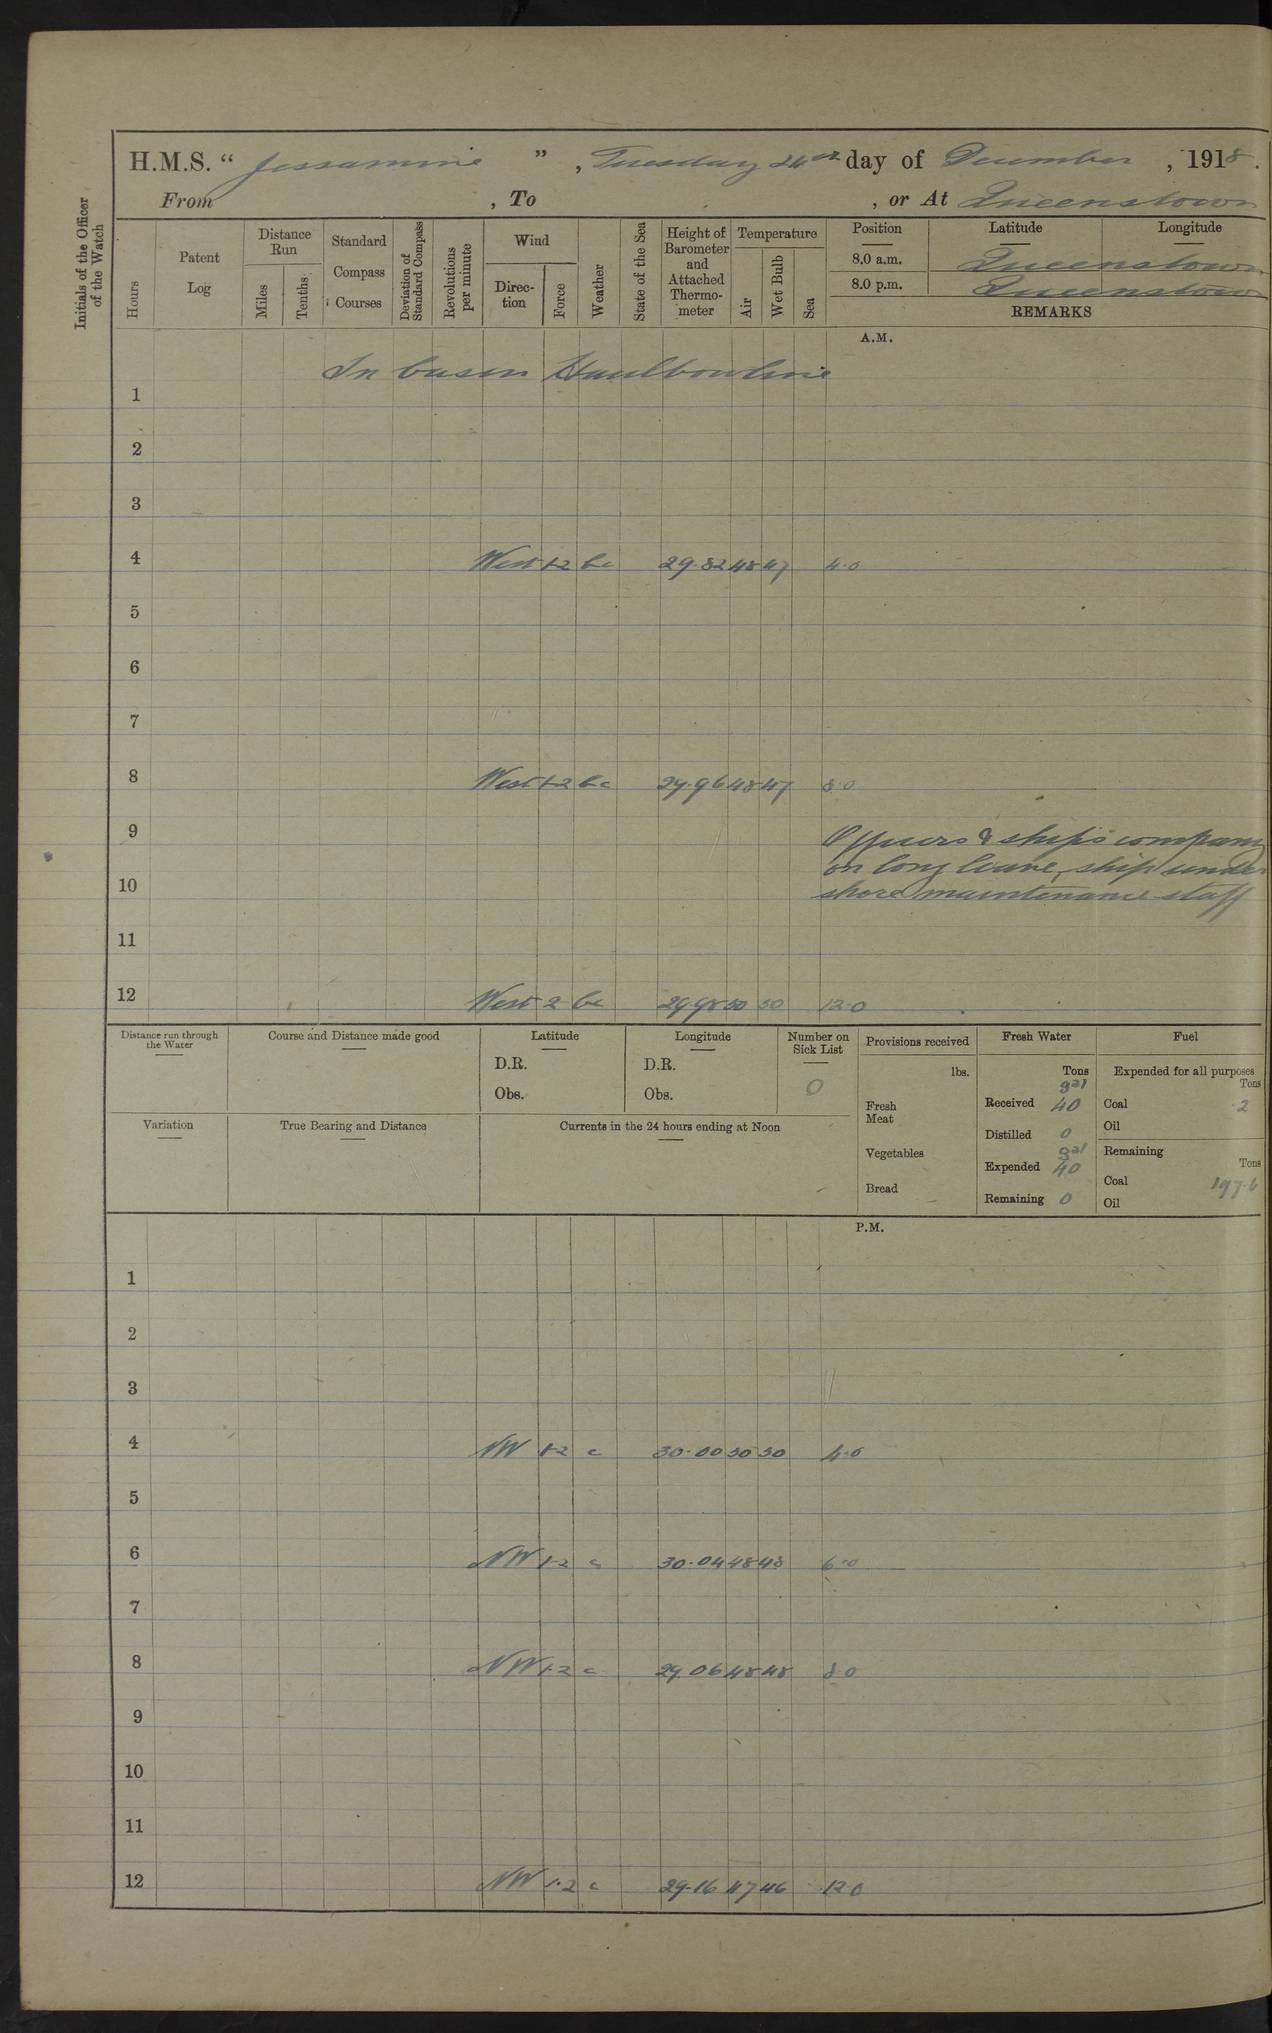 H.M.S. " Jessamine " , Tuesday 24th day of December , 1918 .
From , To , or At Queenstown
Initials of the Officer of the Watch
Hours
Patent Log
Distance Run
Miles
Tenths
Standard Compass Courses
Deviation of Standard Compass
Revolutions per minute
Wind
Direc-tion
Force
Weather
State of the Sea
Height of Barometer and Attached Thermo-meter
Temperature
Air
Wet Bulb
Sea
Position Latitude Longitude
8.0 a.m. Queenstown
8.0 p.m. Queenstown
REMARKS
A.M.
In basin Haulbowline
1
2
3
4 West 1-2 bc 29.82 48 47 4.0
5
6
7
8 West 1-2 bc 29.96 48 47 8.0
9 Officers & ship's company
on long leave, ship under
10 shore maintenance staff
11
12 West 2 bc 29.98 50 50 12.0
Distance run through the Water
Course and Distance made good
Latitude
D.R.
Obs.
Longitude
D.R.
Obs.
Number on Sick List
0
Provisions received
lbs.
Fresh Meat
Vegetables
Bread -
Fresh Water
Tons
gal
Received 40
Distilled 0
gal
Expended 40
Remaining 0
Fuel
Expended for all purposes
Tons
Coal .2
Oil
Remaining
Tons
Coal 197.6
Oil
Variation
True Bearing and Distance
Currents in the 24 hours ending at Noon
P.M.
1
2
3
4 NW 1-2 c 30.00 50 50 4.0
5
6 NW 1-2 c 30.04 48 48 6.0
7
8 NW 1-2 c 29.06 48 48 8.0
9
10
11
12 NW 1.2 c 29.16 47 46 12.0